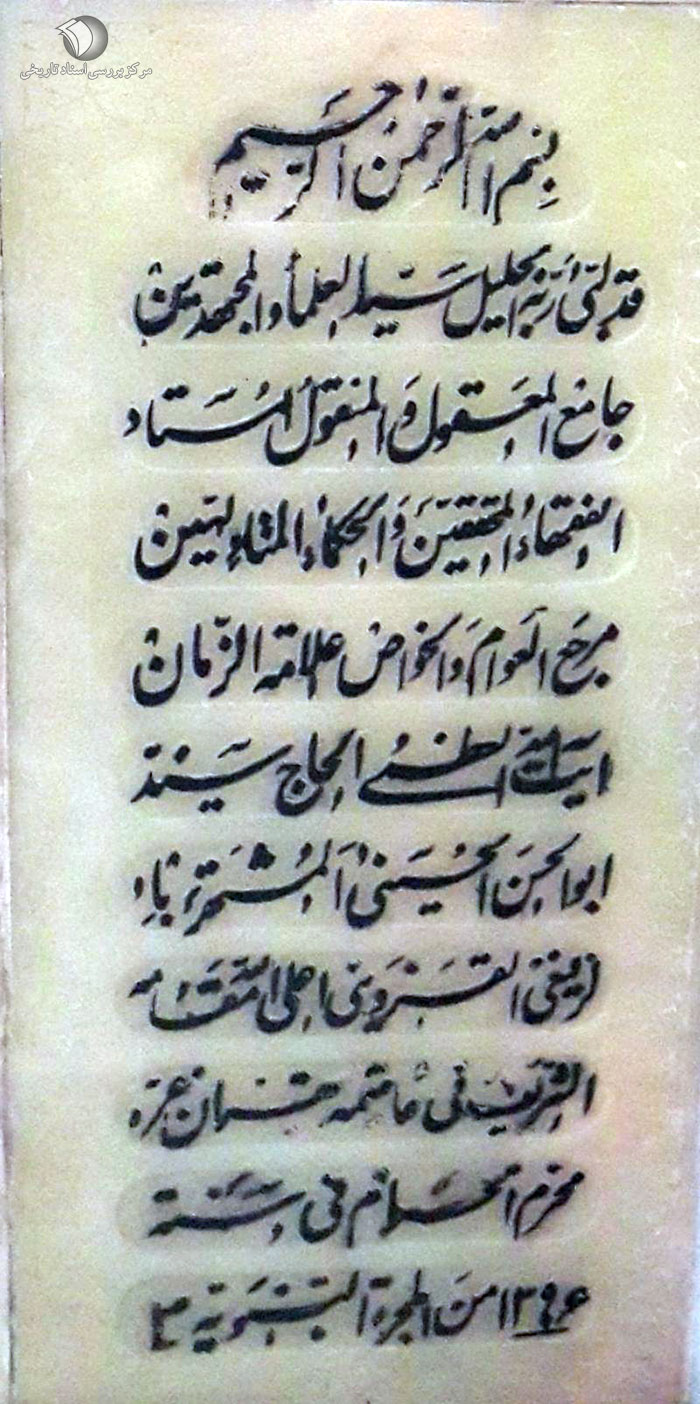 مرکز بررسی اسناد تاریخی
بسم الله الرحمن الرحیم
قد لبّی ربّه الجلیل سیّد العلمأ والمجتهدین
جامع المعقول و المنقول استاد
الفقهاء المحققین و الحکماء المتألهین
مرجع العوام و الخواص علامة الزمان
آیت الله العظمی الحاج سیّد
ابوالحسن الحسینی المشتهر
القزوینی اعلی الله مقامه
الشریف فی عاصمه غره
محرم الحرام فی سنة
۱۳۹۶ من الهجرة النبویة